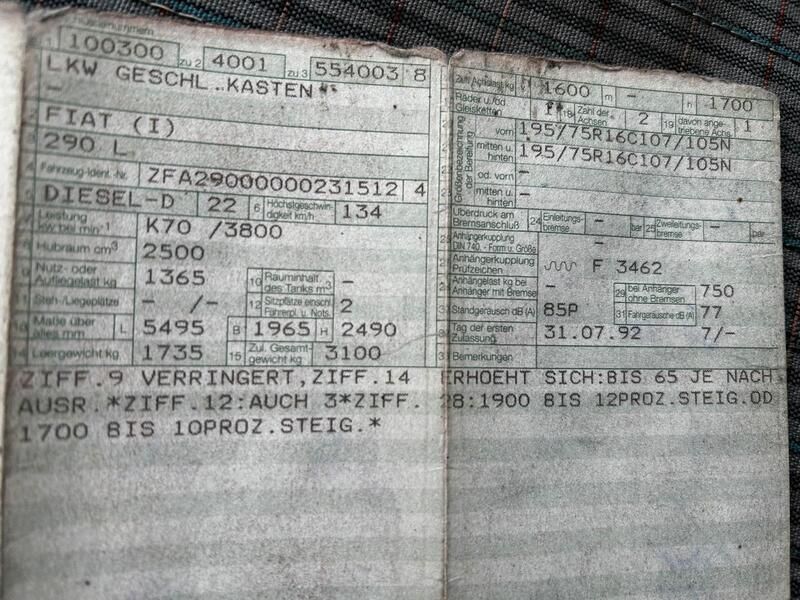 1 100300 zu 2 4001 zu 3 554003 8
LKW GESCHL.KASTEN
-
FIAT (I)
290 L
4 Fahrzeug-Ident.-Nr. ZFA29000000231512 4
5 DIESEL-D 22 6 Höchstgeschwindigkeit km/h 134
Leistung kW bei min-1 K70 /3800
8 Hubraum cm³ 2500
9 Nutz- oder Aufliegelast kg 1365 10 Rauminhalt des Tanks m³ -
11 Steh-/Liegeplätze - /- 12 Sitzplätze einschl. Führerpl. u. Nots. 2
13 Maße über alles mm L 5495 B 1965 H 2490
14 Leergewicht kg 1735 15 Zul. Gesamtgewicht kg 3100
Zul. Achslast kg v 1600 m - h 1700
Räder u./od. Gleisketten 1 18 Zahl der Achsen 2 19 davon angetriebene Achs. 1
Größenbezeichnung der Bereifung
vorn 195/75R16C107/105N
mitten u. hinten 195/75R16C107/105N
od. vorn -
mitten u. hinten -
Überdruck am Bremsanschluß 24 Einleitungsbremse - bar 25 Zweileitungsbremse - bar
Anhängerkupplung DIN 740.- Form u. Größe -
Anhängerkupplung Prüfzeichen F 3462
Anhängelast kg bei Anhänger mit Bremse - 29 bei Anhänger ohne Bremsen 750
30 Standgeräusch dB (A) 85P 31 Fahrgeräusche dB (A) 77
Tag der ersten Zulassung 31.07.92 7/-
33 Bemerkungen
ZIFF.9 VERRINGERT,ZIFF.14 ERHOEHT SICH:BIS 65 JE NACH
AUSR.*ZIFF.12:AUCH 3*ZIFF.28:1900 BIS 12PROZ.STEIG.OD
1700 BIS 10PROZ.STEIG.*